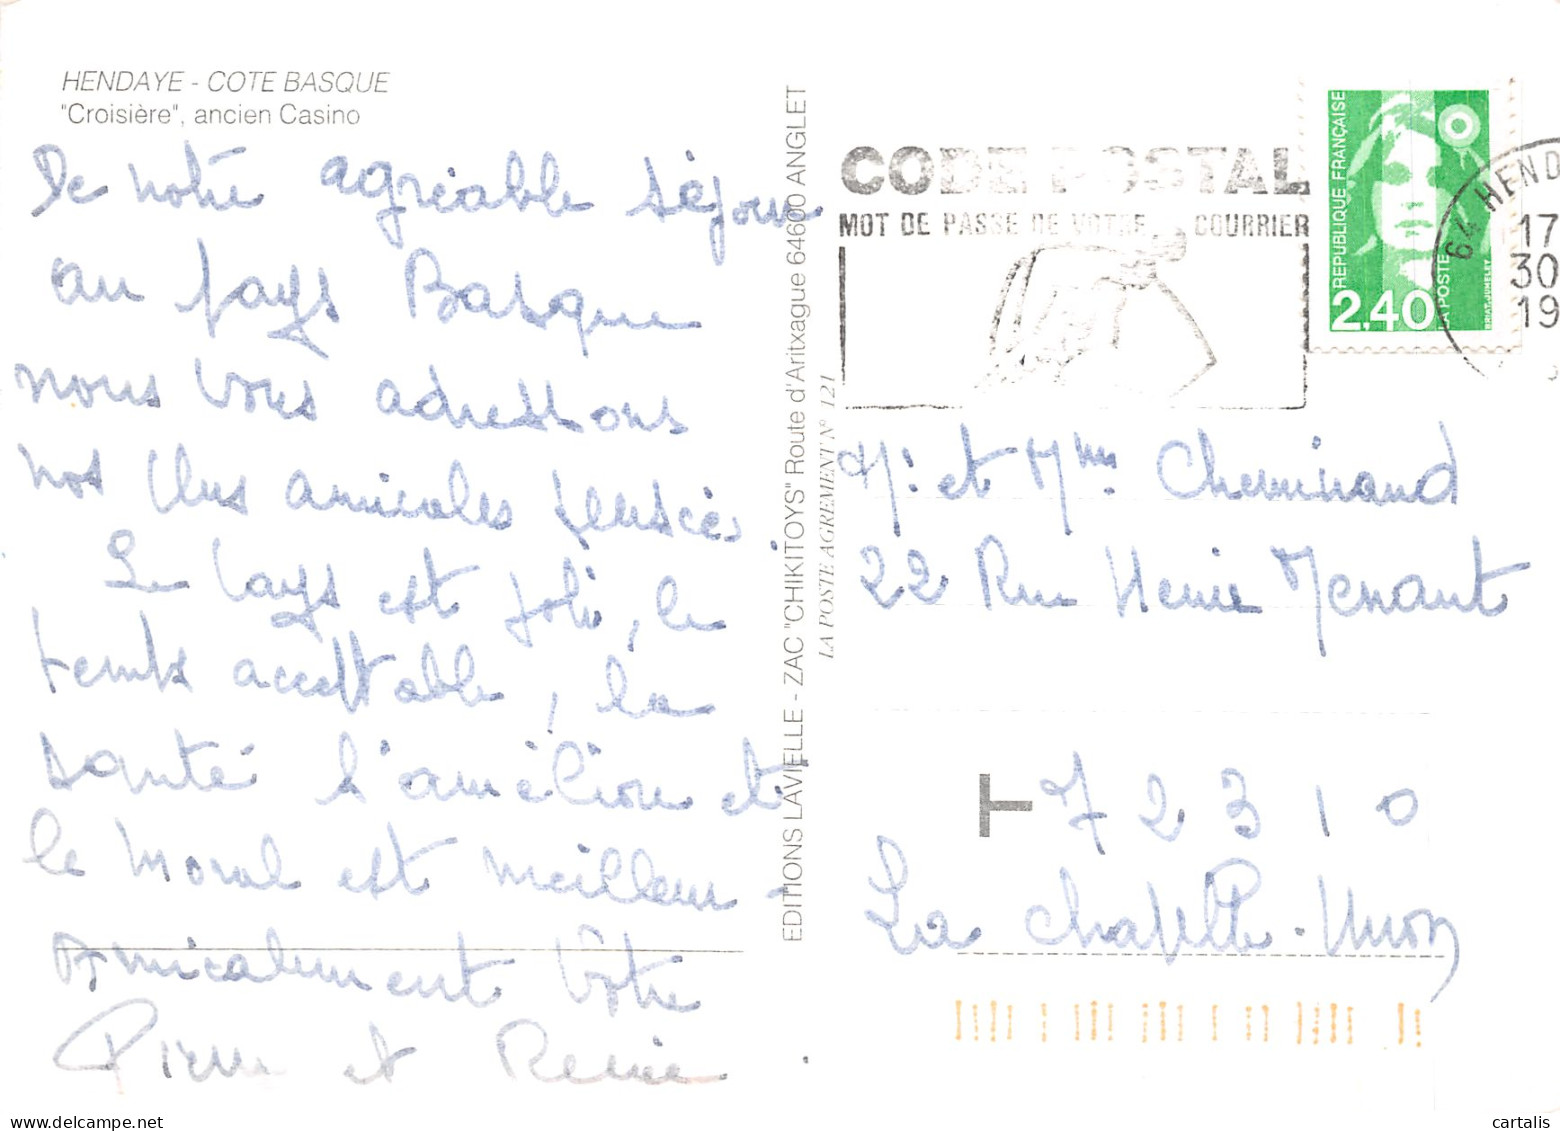 HENDAYE - COTE BASQUE
"Croisière", ancien Casino
De notre agréable séjour
au pays Basque
nous vous adressons
nos plus amicales pensées
Le pays est joli, le
temps acceptable, la
santé s'améliore et
le moral est meilleur -
Amicalement Votre
Pierre et Renée
EDITIONS LAVIELLE - ZAC "CHIKITOYS" Route d'Aritxague 64600 ANGLET
LA POSTE AGREMENT N° 121
CODE POSTAL
MOT DE PASSE DE VOTRE COURRIER
REPUBLIQUE FRANÇAISE
2,40
LA POSTE
BRIAT-JUMELET
64 HEND
17
30
19
Mr et Mme Cheminand
22 Rue Henri Menant
72310
La Chapelle-Huon
cartalis
www.delcampe.net